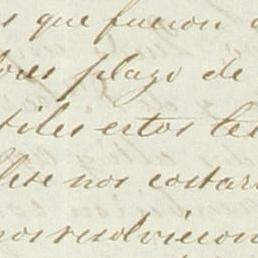 s que fueron
ores plazo de
siles estos te
lese nos costar
nos resolvieron